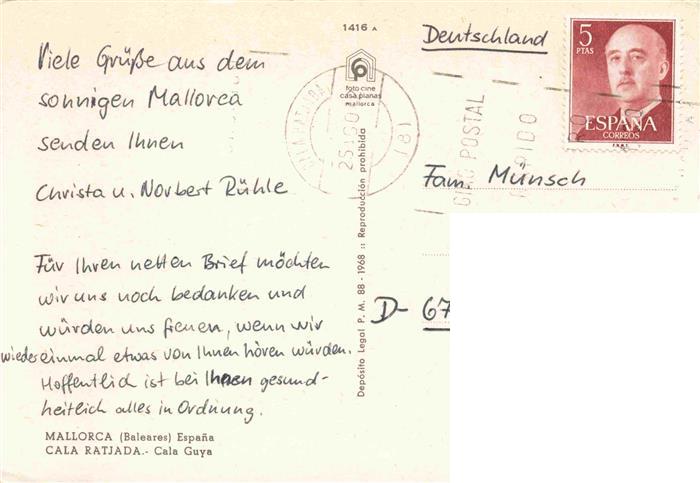 1416 A
Deutschland
5
PTAS
ESPAÑA
CORREOS
Viele Grüße aus dem
sonnigen Mallorca
senden Ihnen
Christa u. Norbert Rühle
foto-cine
casa planas
mallorca
GIRO POSTAL
181
Fam. Münsch
Für Ihren netten Brief möchten
wir uns noch bedanken und
würden uns freuen, wenn wir
wiedereinmal etwas von Ihnen hören würden.
Hoffentlich ist bei Ihnen gesund-
heitlich alles in Ordnung.
D- 67
Depósito Legal P. M. 88 - 1968 :: Reproducción prohibida
MALLORCA (Baleares) España
CALA RATJADA.- Cala Guya